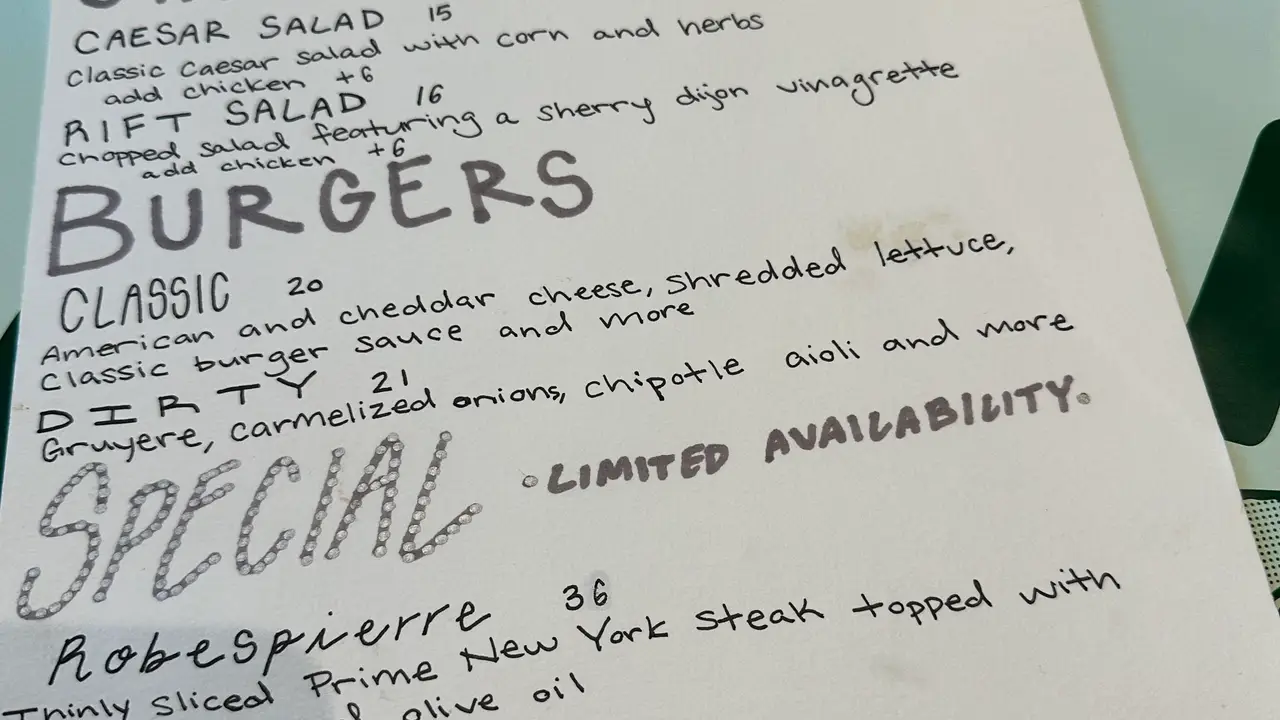 CAESAR SALAD 15
Classic Caesar salad with corn and herbs
add chicken +6
RIFT SALAD 16
Chopped salad featuring a sherry dijon vinagrette
add chicken +6
BURGERS
CLASSIC 20
American and cheddar cheese, shredded lettuce,
Classic burger sauce and more
DIRTY 21
Gruyere, carmelized onions, chipotle aioli and more
SPECIAL •LIMITED AVAILABILITY•
Robespierre 36
Thinly sliced Prime New York steak topped with
olive oil